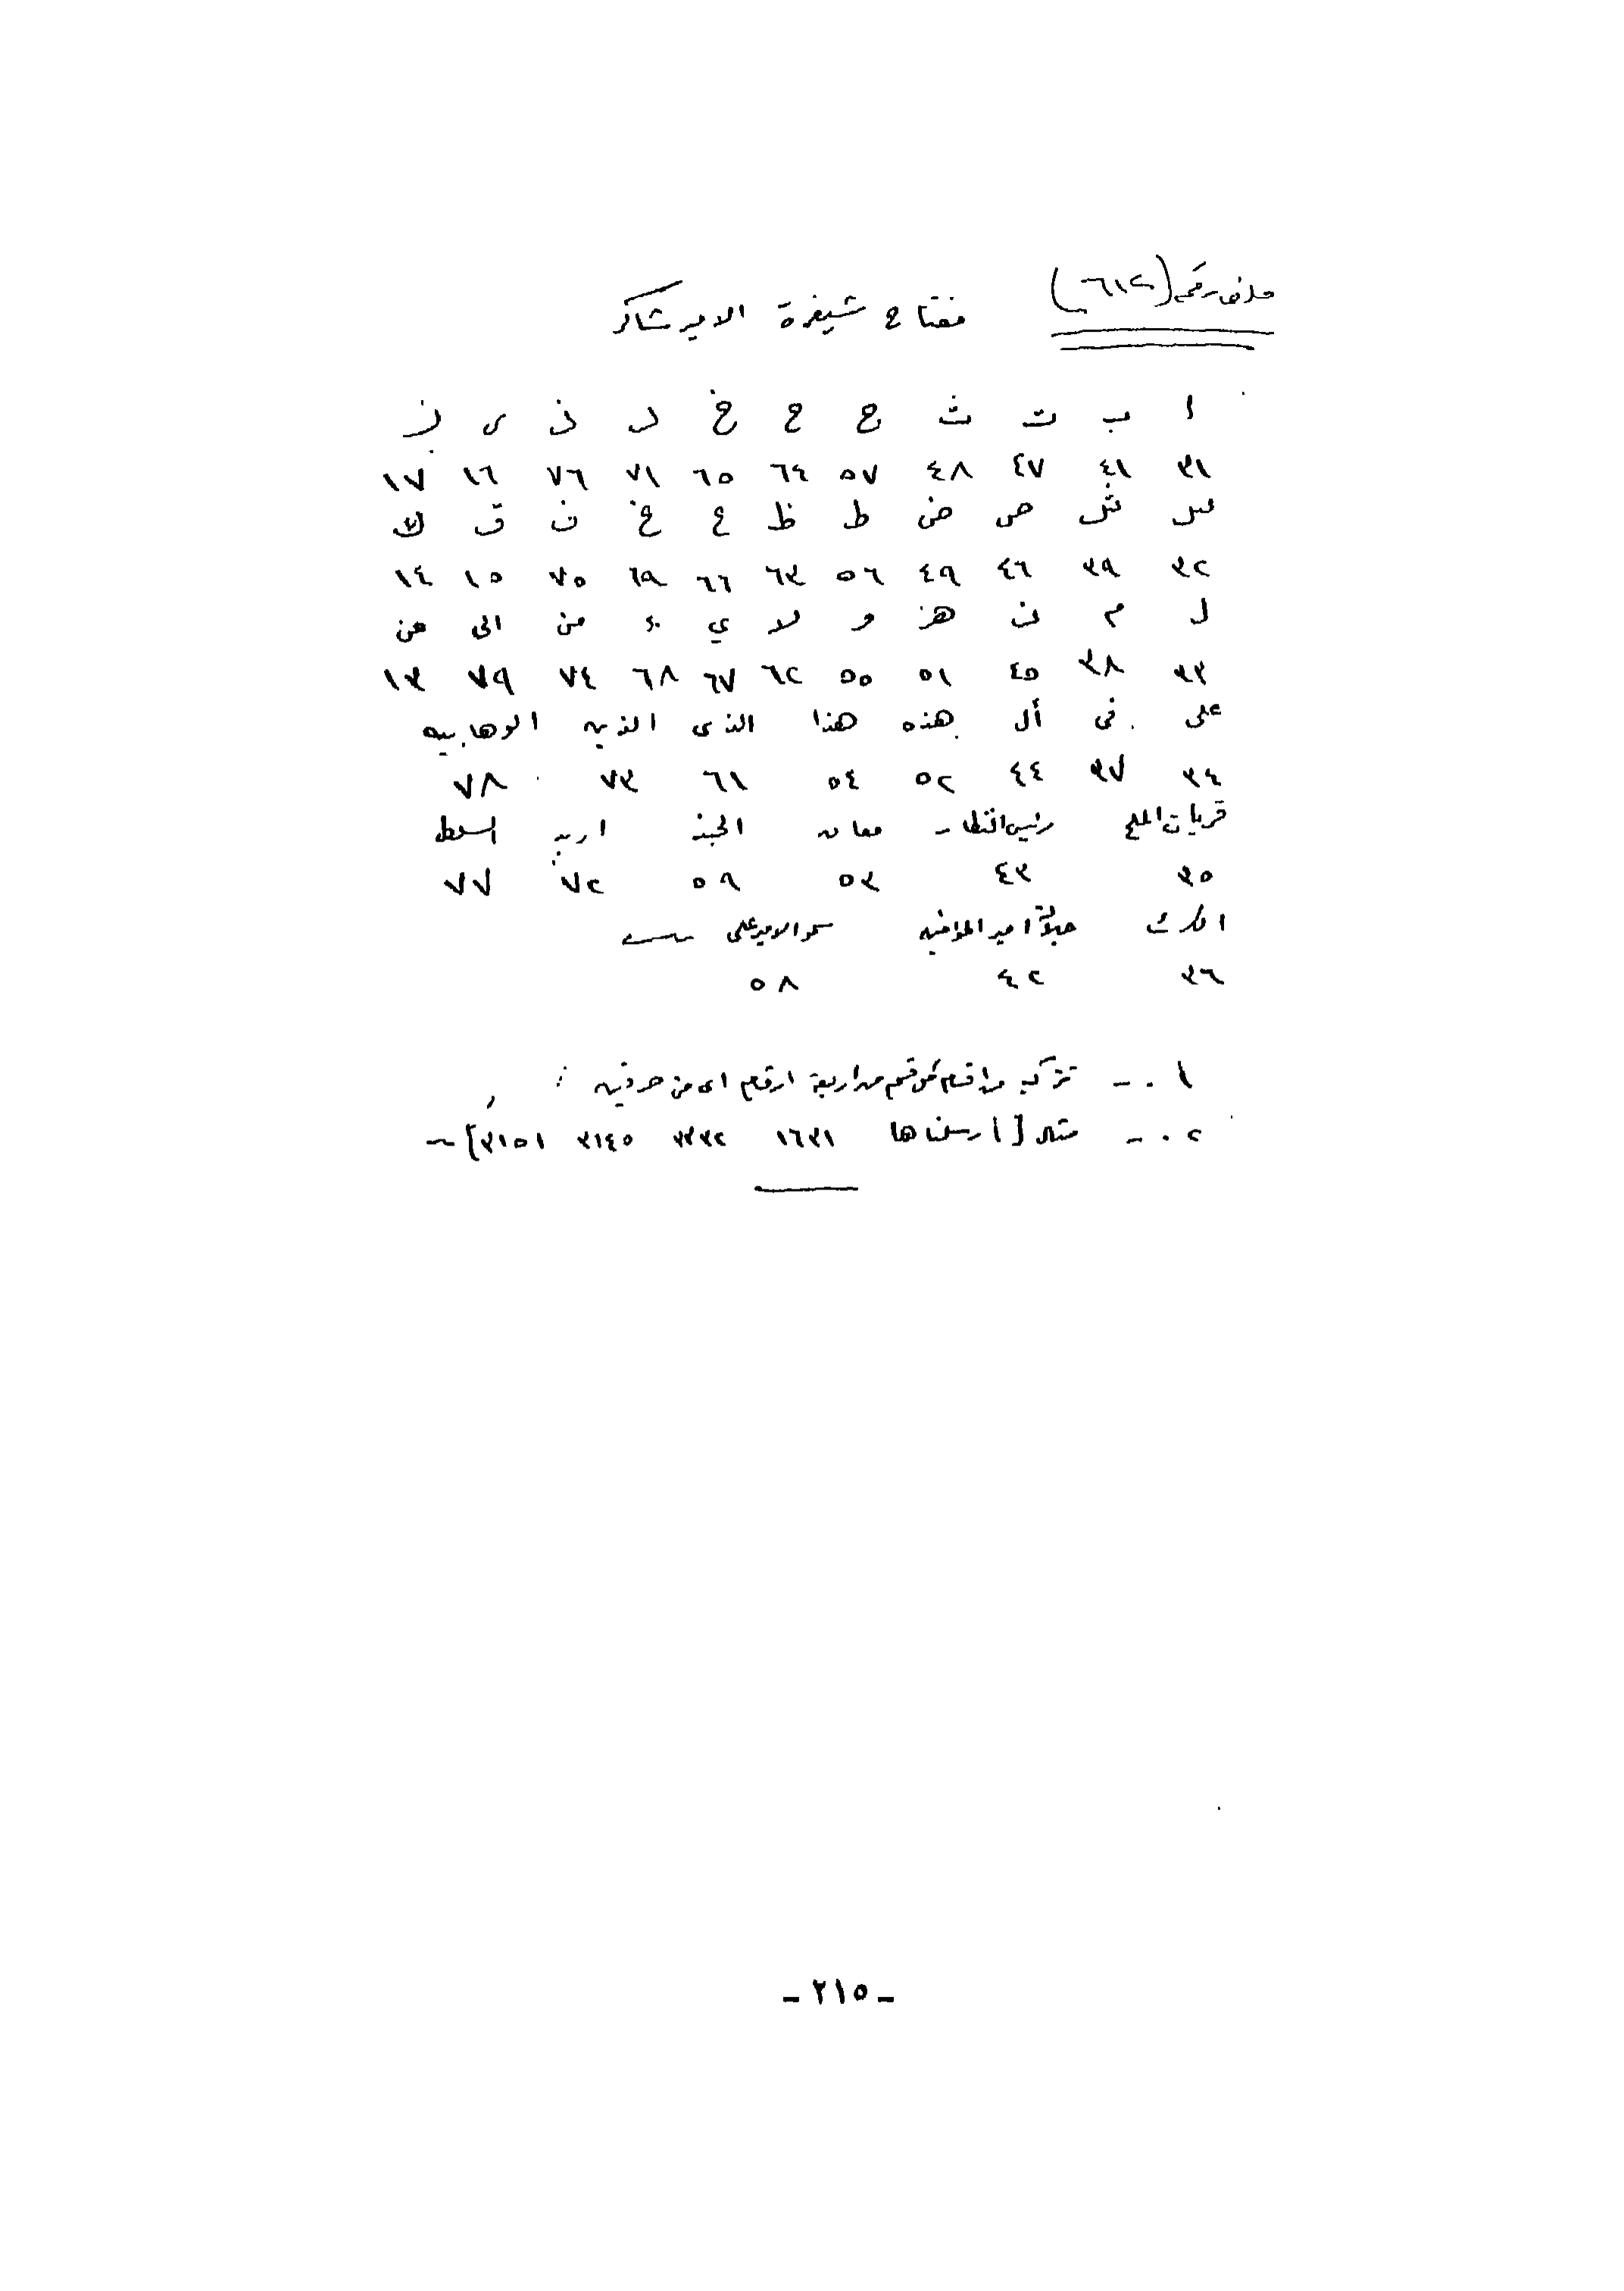 ملف رقم (٦١٢)
مفتاح شيفرة الامير شاكر
ا ب ت ث ج ح خ د ذ ر ز
٣١ ٤١ ٤٧ ٤٨ ٥٧ ٦٤ ٦٥ ٧١ ٧٦ ١٦ ١٧
س ش ص ض ط ظ ع غ ف ق ك
٣٢ ٣٩ ٤٦ ٤٩ ٥٦ ٦٣ ٦٦ ٦٩ ٧٥ ١٥ ١٤
ل م ن ه و لا ي ء من الى عن
٣٣ ٣٨ ٤٥ ٥١ ٥٥ ٦٢ ٦٧ ٦٨ ٧٤ ٧٩ ١٣
على في أل هذه هذا الذى الذين الوهابيه
٣٤ ٣٧ ٤٤ ٥٢ ٥٤ ٦١ ٧٣ ٧٨
قريات الملح رئيس النظار معان الجند اربد السلط
٣٥ ٤٣ ٥٣ ٥٩ ٧٢ ٧٧
الكرك جلالة امير المؤمنين سمو الامير على
٣٦ ٤٢ ٥٨
١ . - تتركب من اقسام كل قسم من اربعة ارقام اى من حرفين :
٢ . - مثال [ ارسلناها ١٦٣١ ٣٣٣٢ ٣١٤٥ ٣١٥١ ] ~
- ٢١٥ -